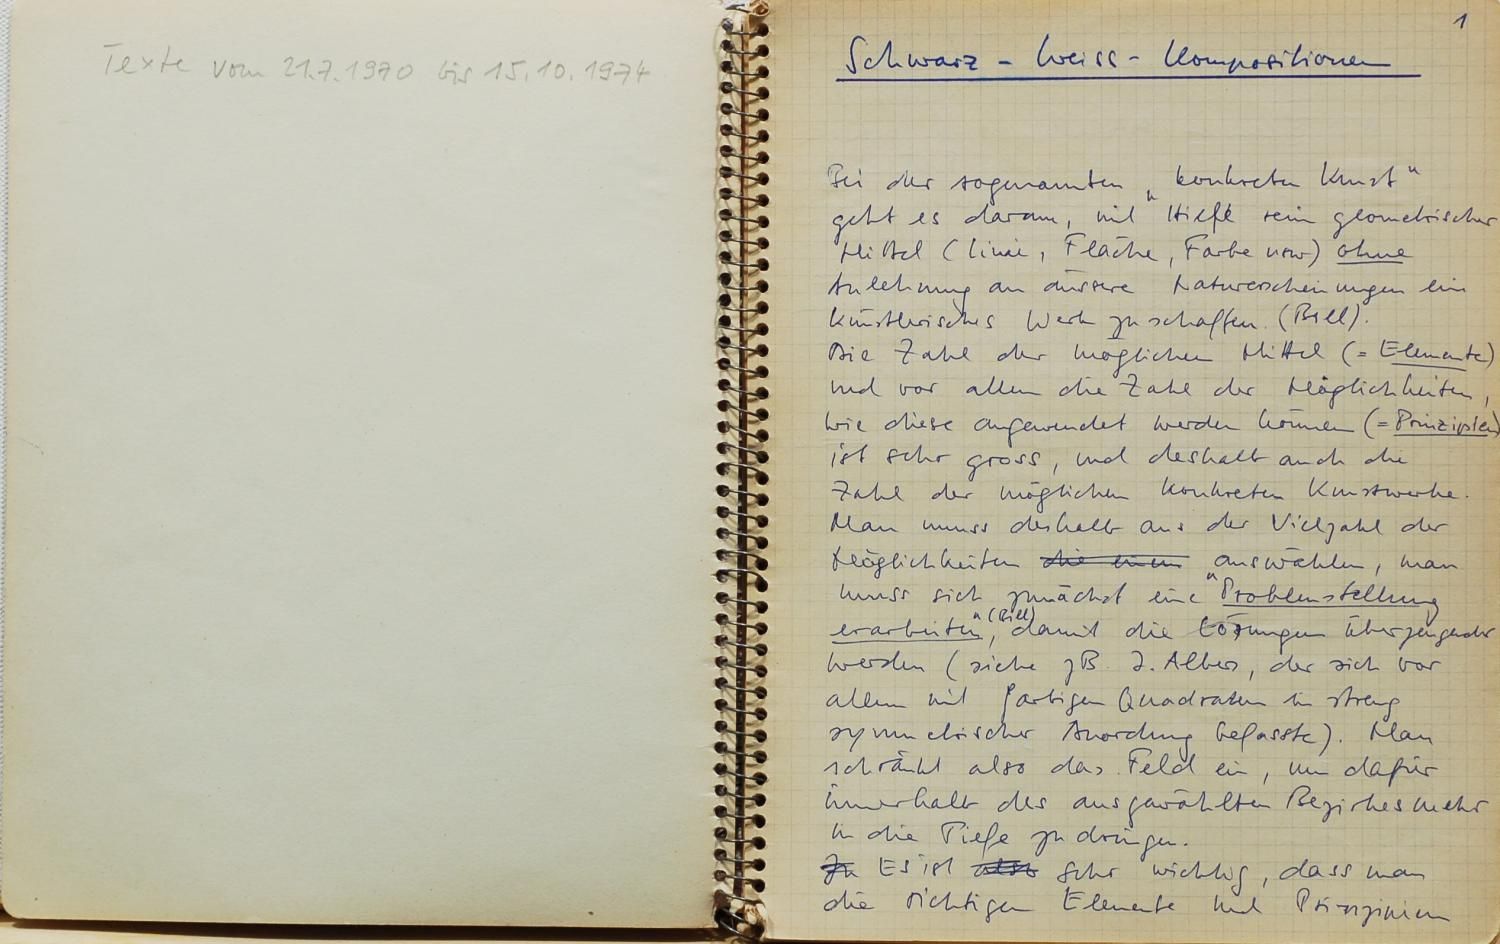 Texte vom 21.7.1970 bis 15.10.1974
1
Schwarz - Weiss - Kompositionen
Bei der sogenannten „konkreten Kunst"
geht es darum, mit "Hilfe rein geometrischer
Mittel (Linie, Fläche, Farbe usw) ohne
Anlehnung an äussere Naturerscheinungen ein
künstlerisches Werk zu schaffen. (Bill).
Die Zahl der möglichen Mittel (= Elemente)
und vor allem die Zahl der Möglichkeiten,
wie diese angewendet werden können (= Prinzipien)
ist sehr gross, und deshalb auch die
Zahl der möglichen konkreten Kunstwerke.
Man muss deshalb aus der Vielzahl der
Möglichkeiten die einen auswählen, man
muss sich zunächst eine "Problemstellung
erarbeiten" (Bill), damit die Lösungen überzeugender
werden (siehe zB. J. Albers, der sich vor
allem mit farbigen Quadraten in streng
symmetrischer Anordnung befasste). Man
schränkt also das Feld ein, um dafür
innerhalb des ausgewählten Bezirkes mehr
in die Tiefe zu dringen.
Zu Es ist also sehr wichtig, dass man
die richtigen Elemente und Prinzipien